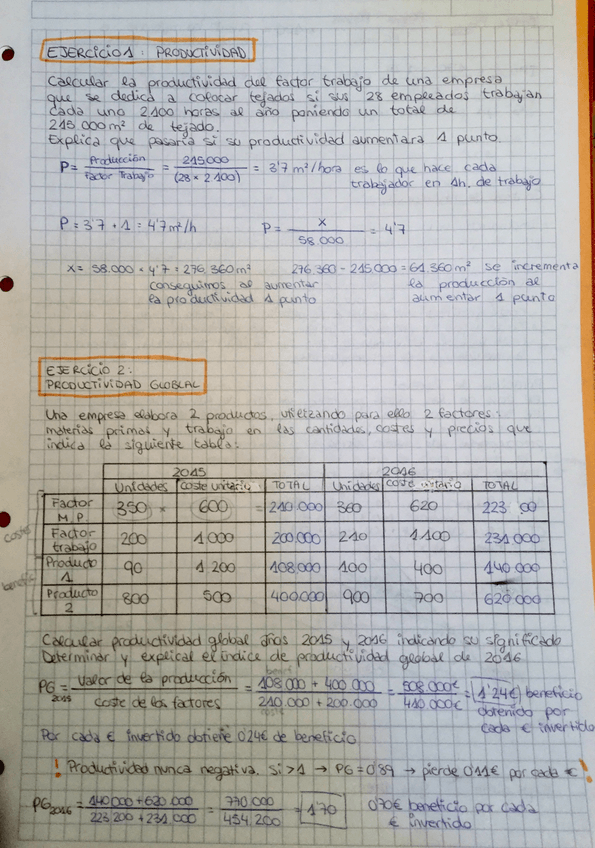 EJERCICIO 1: PRODUCTIVIDAD
Calcular la productividad del factor trabajo de una empresa
que se dedica a colocar tejados si sus 28 empleados trabajan
cada uno 2100 horas al año poniendo un total de
215 000 m² de tejado.
Explica que pasaría si su productividad aumentara 1 punto.
P = Producción / Factor Trabajo = 215000 / (28 × 2100) = 3'7 m²/hora es lo que hace cada
trabajador en 1h. de trabajo
P = 3'7 + 1 = 4'7 m²/h P = x / 58.000 = 4'7
x = 58.000 × 4'7 = 276,360 m² 276 360 - 215.000 = 61 360 m² se incrementa
conseguimos al aumentar la producción al
la productividad 1 punto aumentar 1 punto
EJERCICIO 2:
PRODUCTIVIDAD GLOBLAL
Una empresa elabora 2 productos, utilizando para ello 2 factores:
materias primas y trabajo en las cantidades, costes y precios que
indica la siguiente tabla:
2015 2016
Unidades coste unitario TOTAL Unidades coste unitario TOTAL
Factor M.P. 350 × 600 = 210.000 360 620 223
Factor trabajo 200 1000 200.000 210 1100 231 000
Producto 1 90 1 200 108.000 100 400 140.000
Producto 2 800 500 400000 900 700 620.000
coste
benefic
Calcular productividad global años 2015 y 2016 indicando su significado
Determinar y explical el índice de productividad global de 2016
PG 2015 = Valor de la producción / coste de los factores = 108 000 + 400 000 / 210.000 + 200.000 = 508 000€ / 410 000€ = 1'24€ beneficio
obtenido por
cada € invertido
Por cada € invertido obtiene 0'24€ de beneficio
! Productividad nunca negativa. Si >1 → PG = 0'89 → pierde 0'11€ por cada € !
PG 2016 = 140000 + 620.000 / 223 200 + 231 000 = 770.000 / 454.200 = 1'70 0'70€ beneficio por cada
€ invertido